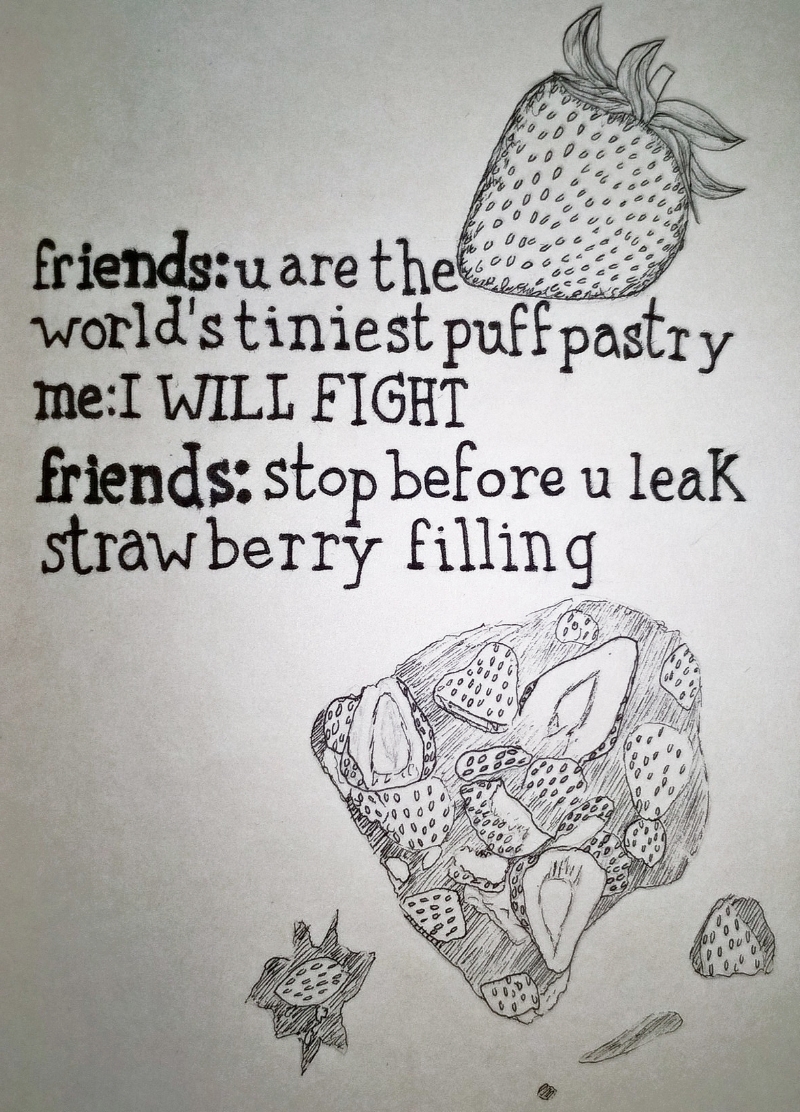 friends: u are the
world's tiniest puff pastry
me: I WILL FIGHT
friends: stop before u leak
strawberry filling